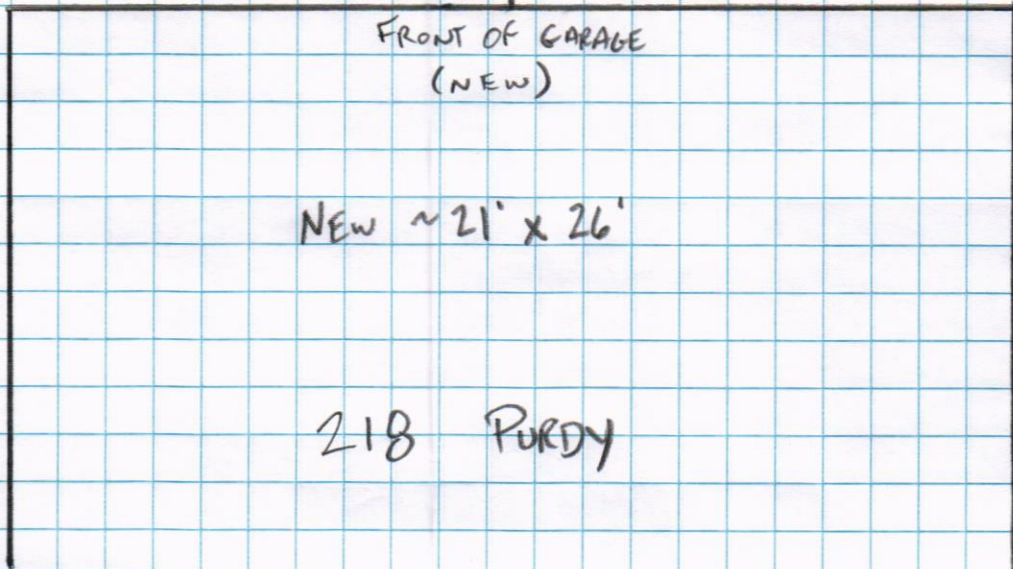 FRONT OF GARAGE
(NEW)
NEW ~21' x 26'
218 PURDY